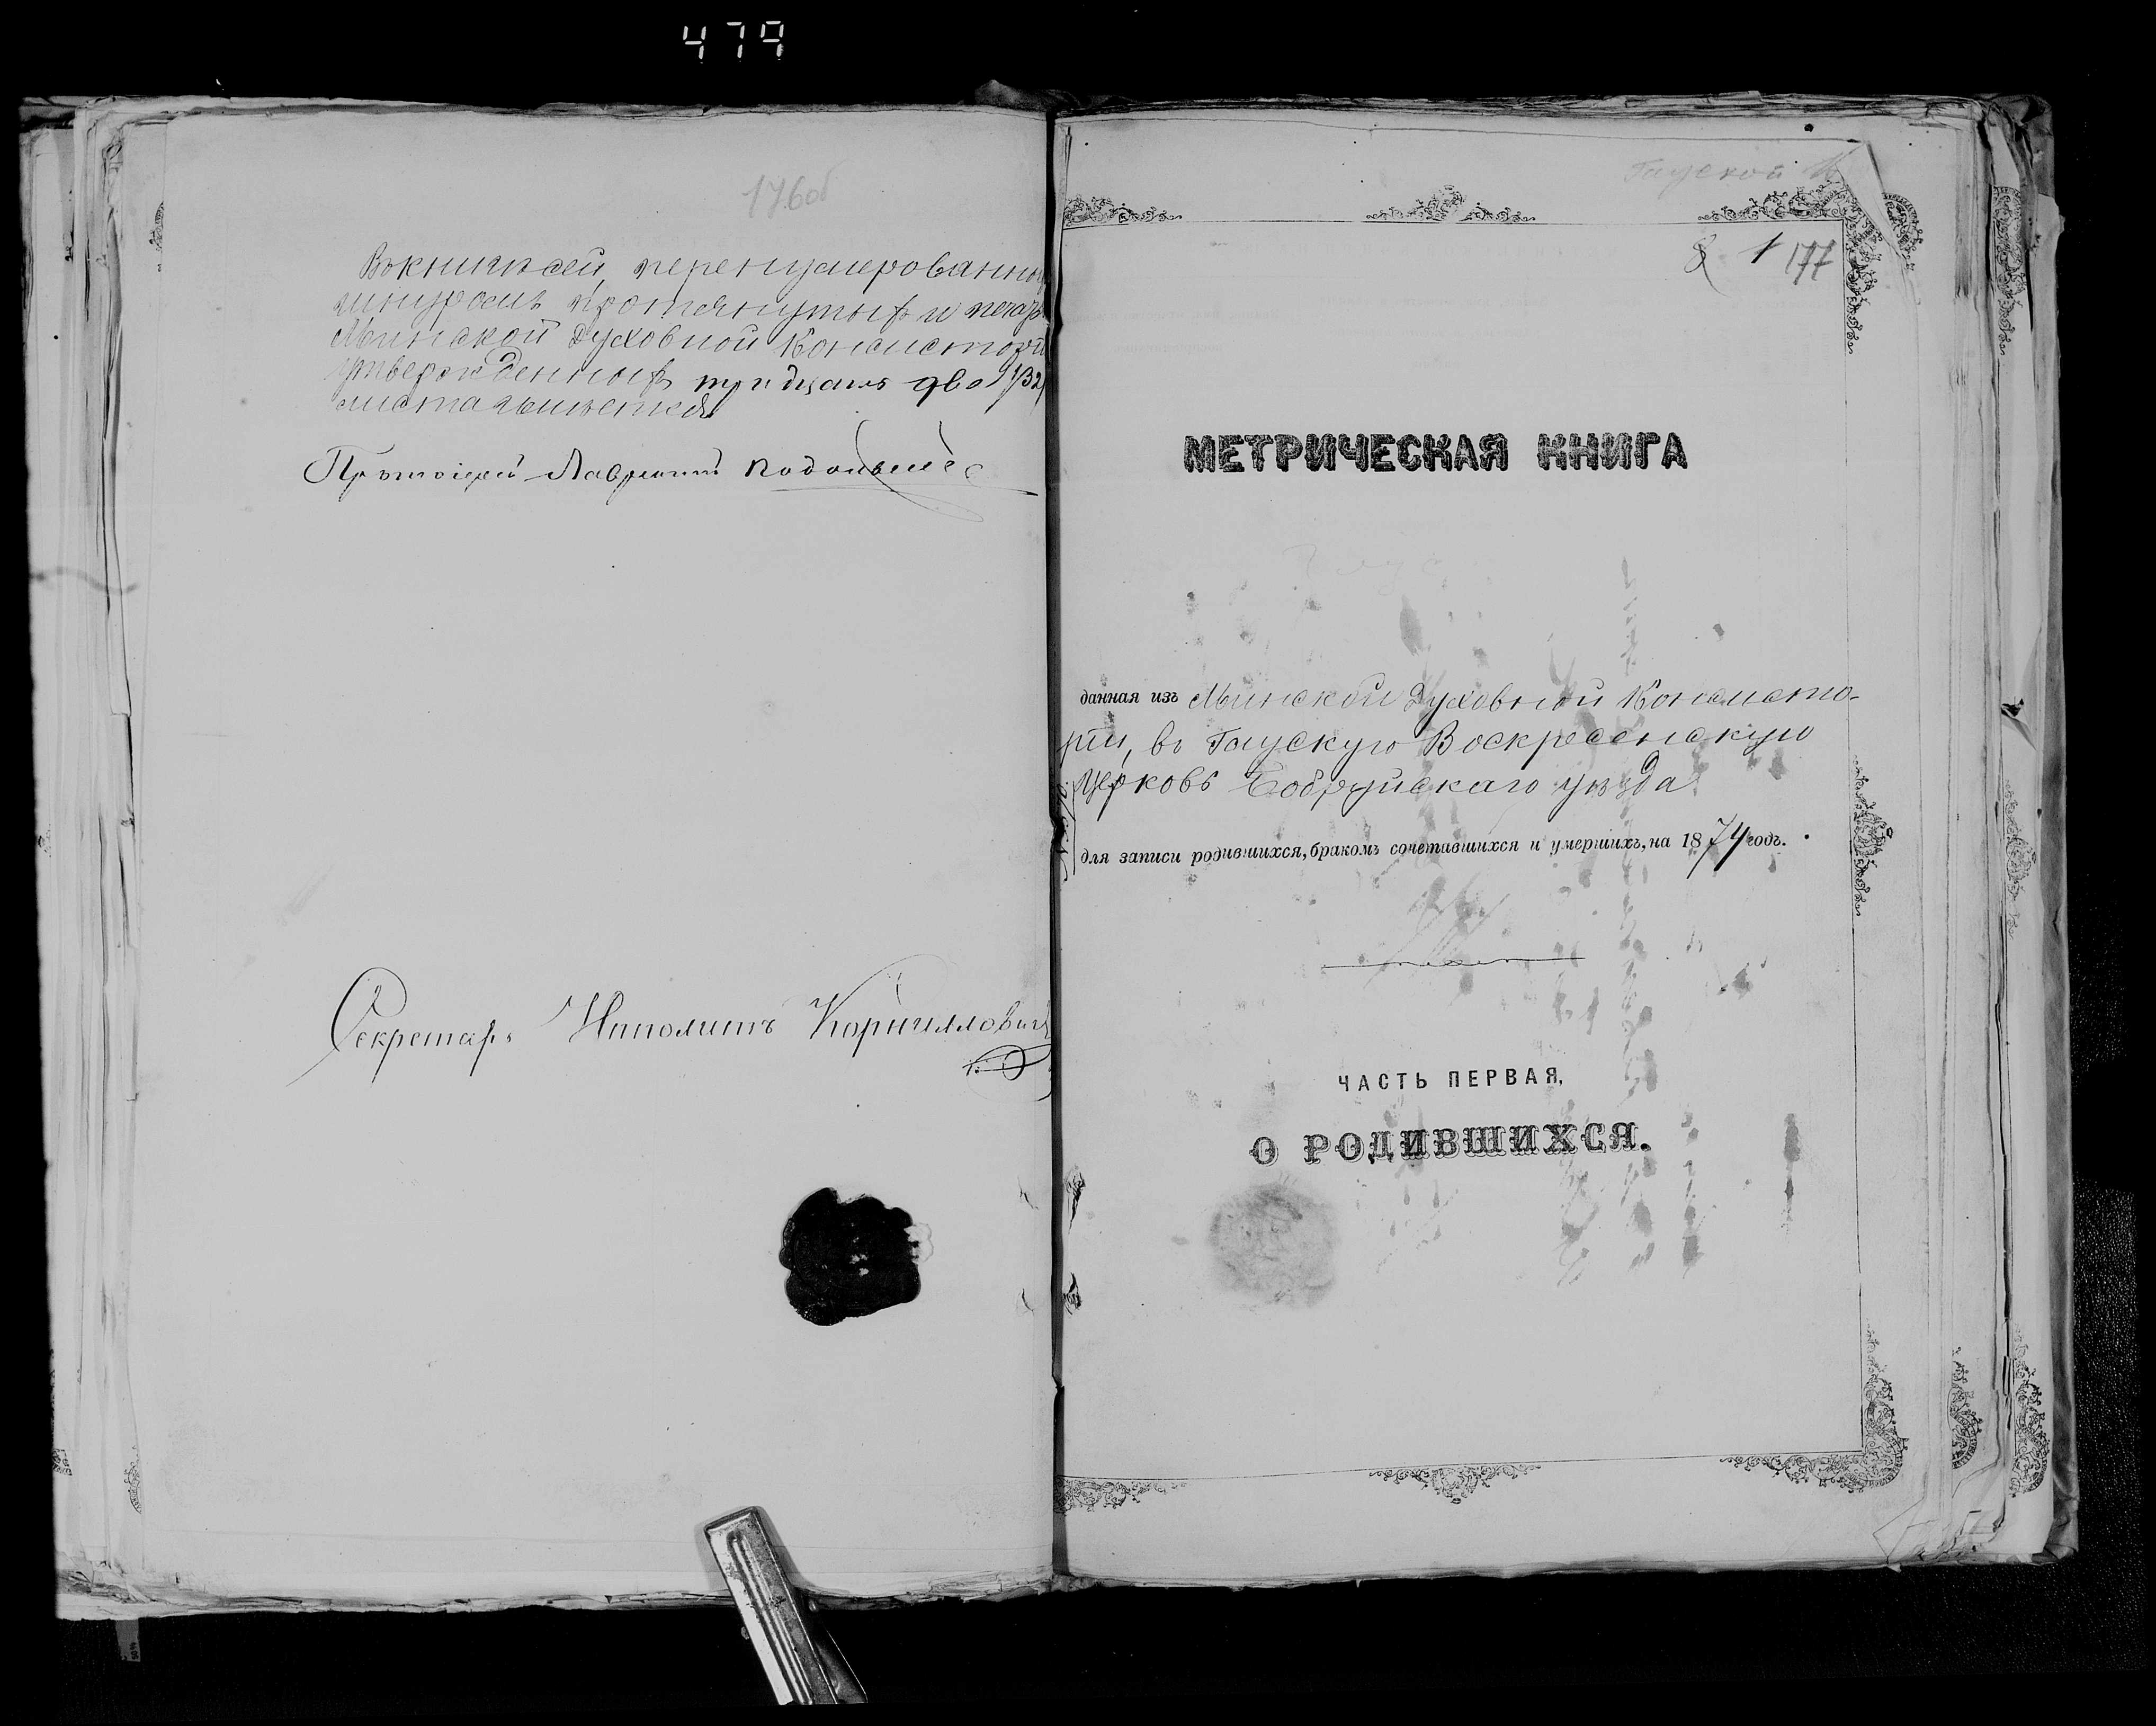 479
176об
Въ книгѣ сей, перенумерованной
шнуромъ протянутыхъ и печат
Минской Духовной Консисторіи
утвержденныхъ тридцать два /32/
листа имѣется
Протоіерей Лаврентій
Секретарь Ипполитъ Корнилловичъ
Глуской
8 1 177
МЕТРИЧЕСКАЯ КНИГА
данная изъ Минской Духовной Консисто-
ріи, въ Глускую Воскресенскую
церковь Бобруйскаго уѣзда
для записи родившихся, бракомъ сочетавшихся и умершихъ, на 1874 годъ.
ЧАСТЬ ПЕРВАЯ,
О РОДИВШИХСЯ.